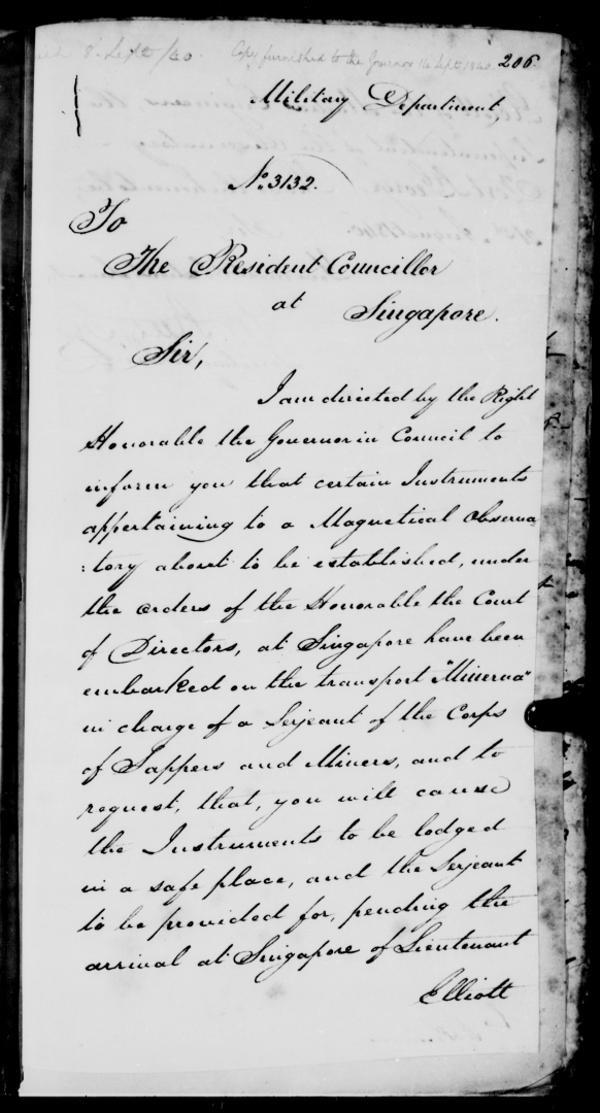 8. Sept /40. Copy furnished to the Governor 14 Sept 1840. 206.
Military Department,
No. 3132.
To
The Resident Councillor
at Singapore.
Sir,
I am directed by the Right
Honorable the Governor in Council to
inform you that certain Instruments
appertaining to a Magnetical Observa
:tory about to be established, under
the orders of the Honorable the Court
of Directors, at Singapore have been
embarked on the transport "Minerva"
in charge of a Serjeant of the Corps
of Sappers and Miners, and to
request, that, you will cause
the Instruments to be lodged
in a safe place, and the Serjeant
to be provided for, pending the
arrival at Singapore of Lieutenant
Elliott